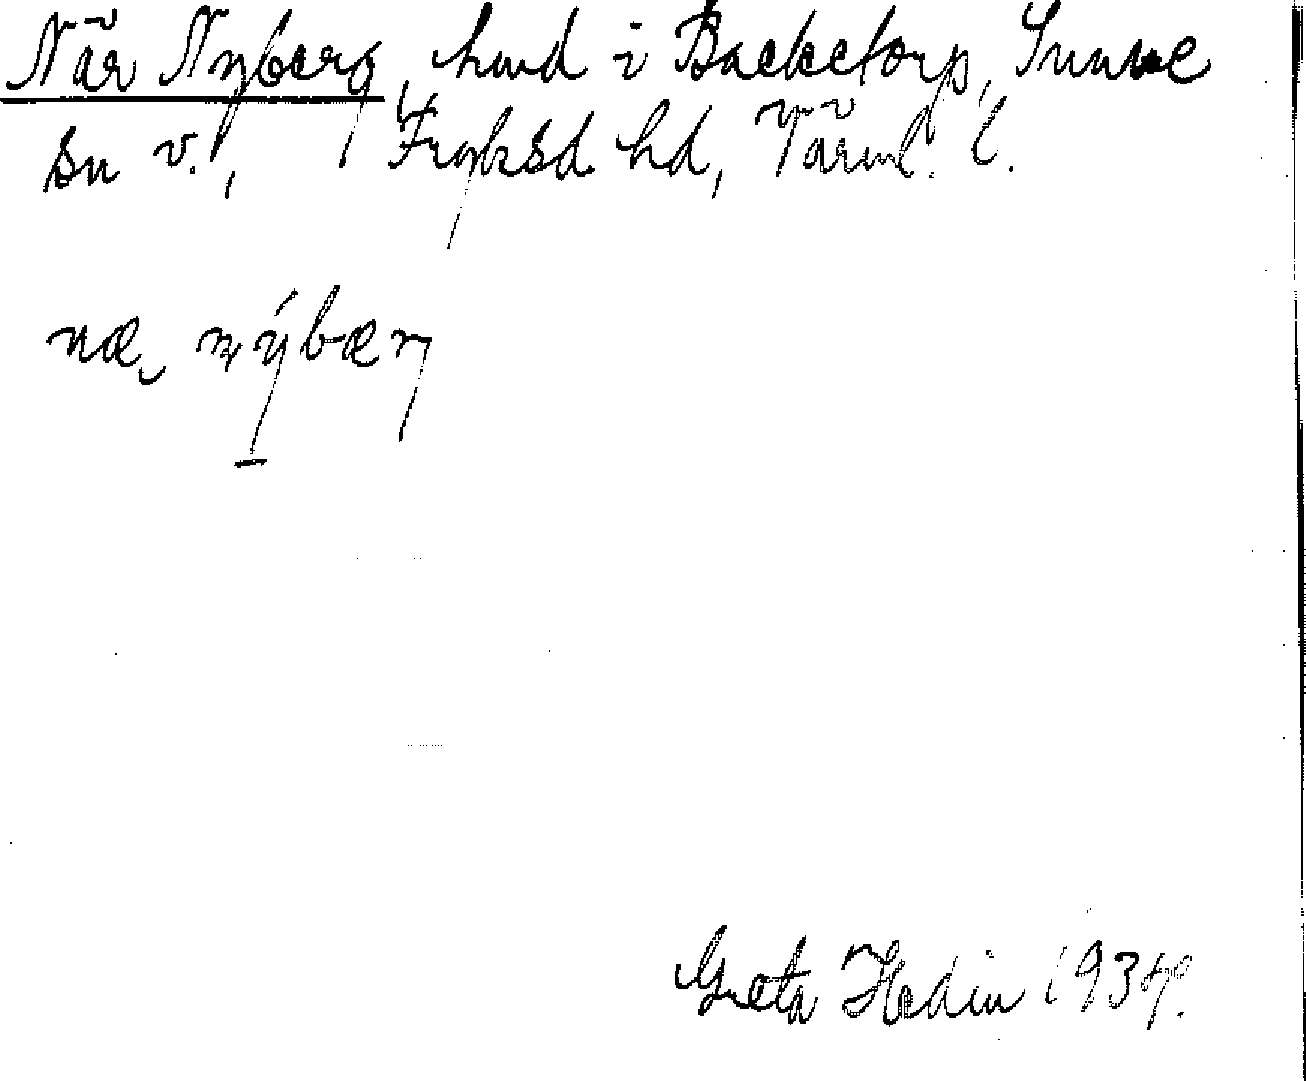 När Nyberg, hmd i Backetorp, Sunne
sn v., Fryksd. hd, Värml. l.
næ nýbær
Greta Hedin 1934.